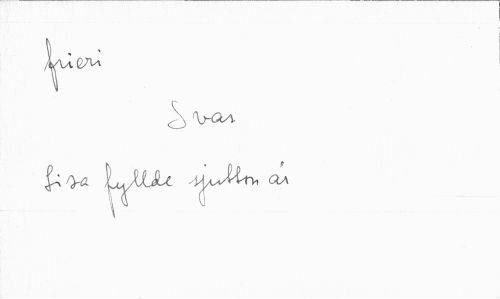 frieri
Svar
Lisa fyllde sjutton år